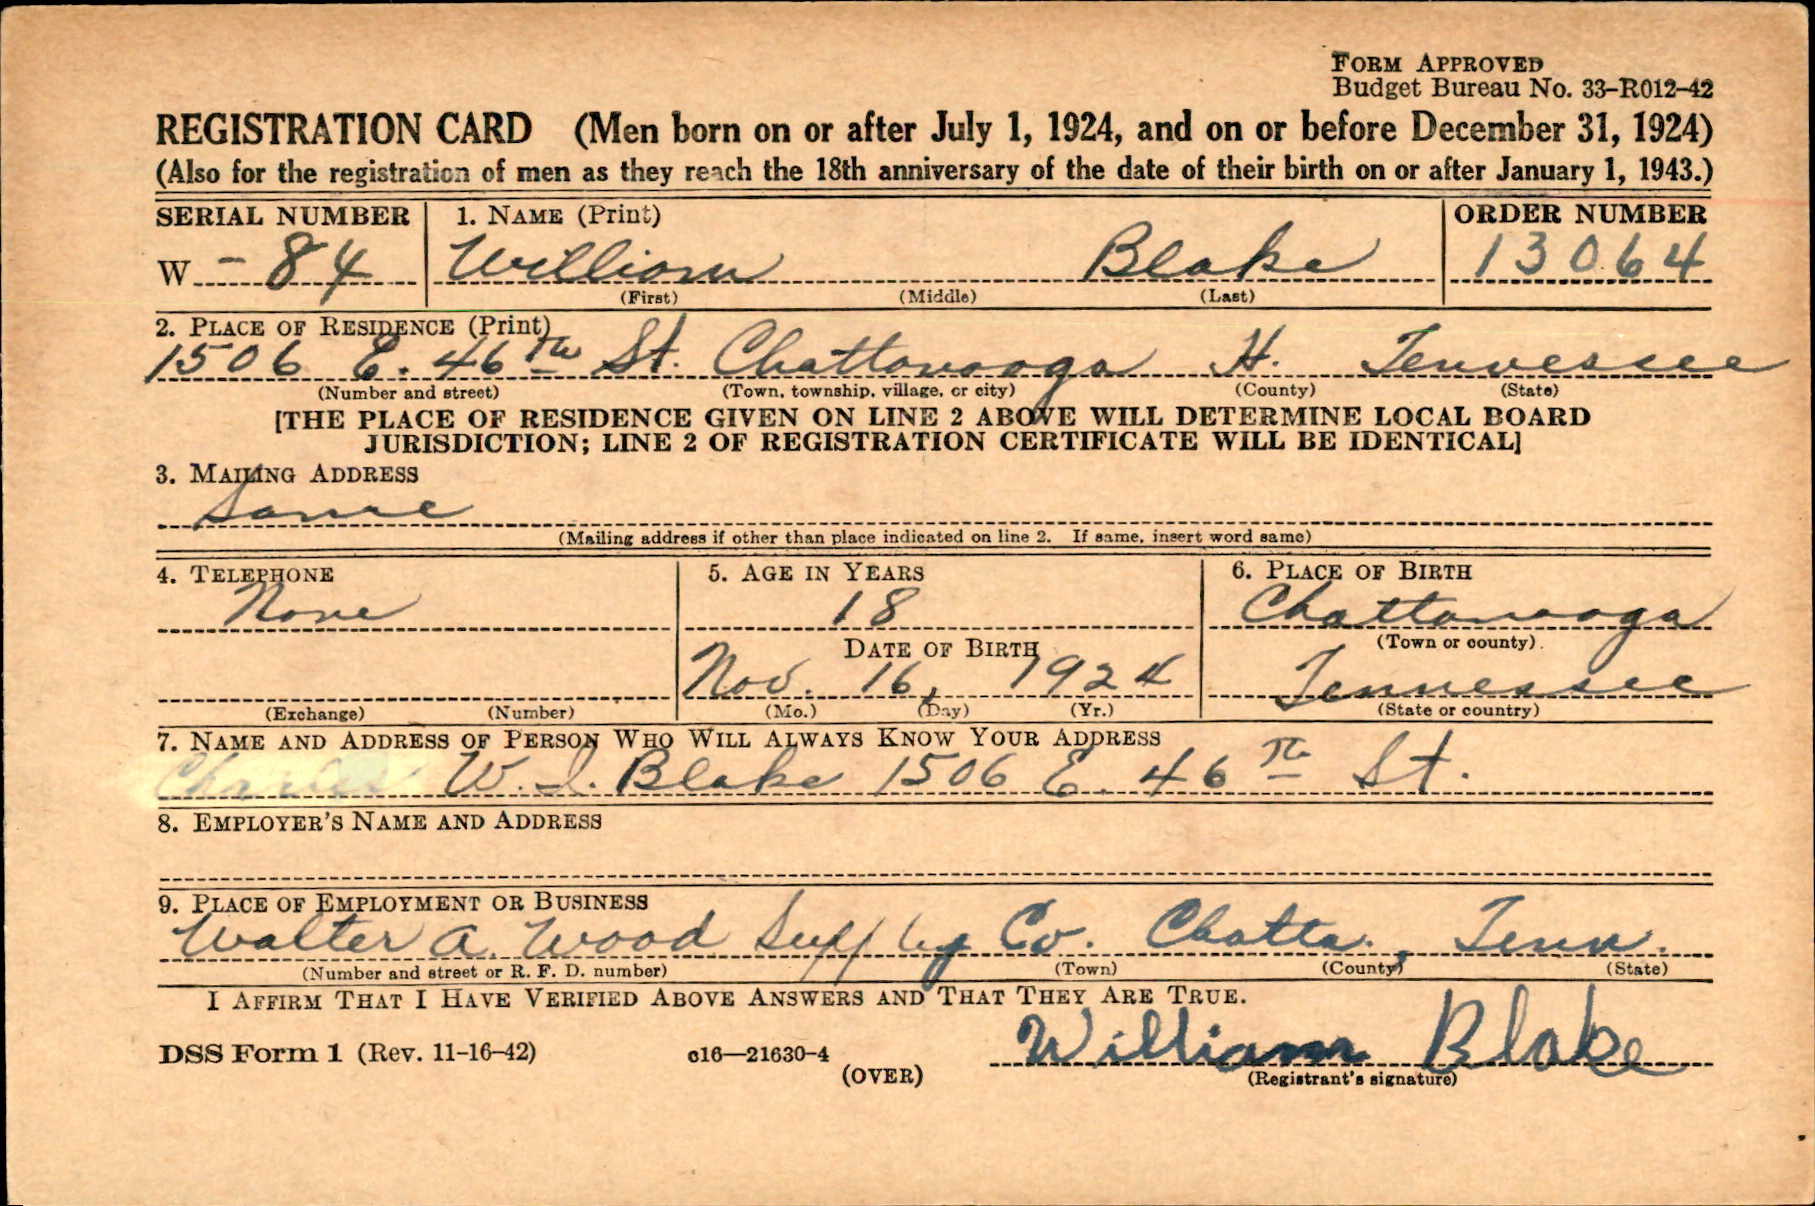 FORM APPROVED
Budget Bureau No. 33–R012–42
REGISTRATION CARD (Men born on or after July 1, 1924, and on or before December 31, 1924)
(Also for the registration of men as they reach the 18th anniversary of the date of their birth on or after January 1, 1943.)
SERIAL NUMBER 1. NAME (Print) ORDER NUMBER
W - 84 William Blake 13064
(First) (Middle) (Last)
2. PLACE OF RESIDENCE (Print)
1506 E. 46th St. Chattanooga H. Tennessee
(Number and street) (Town, township, village, or city) (County) (State)
[THE PLACE OF RESIDENCE GIVEN ON LINE 2 ABOVE WILL DETERMINE LOCAL BOARD
JURISDICTION; LINE 2 OF REGISTRATION CERTIFICATE WILL BE IDENTICAL]
3. MAILING ADDRESS
Same
(Mailing address if other than place indicated on line 2. If same, insert word same)
4. TELEPHONE 5. AGE IN YEARS 6. PLACE OF BIRTH
None 18 Chattanooga
DATE OF BIRTH (Town or county)
Nov. 16, 1924 Tennessee
(Exchange) (Number) (Mo.) (Day) (Yr.) (State or country)
7. NAME AND ADDRESS OF PERSON WHO WILL ALWAYS KNOW YOUR ADDRESS
Charles W. I. Blake 1506 E. 46th St.
8. EMPLOYER'S NAME AND ADDRESS
9. PLACE OF EMPLOYMENT OR BUSINESS
Walter A. Wood Supply Co. Chatta., Tenn.
(Number and street or R. F. D. number) (Town) (County) (State)
I AFFIRM THAT I HAVE VERIFIED ABOVE ANSWERS AND THAT THEY ARE TRUE.
DSS Form 1 (Rev. 11-16-42) c16—21630-4 William Blake
(OVER) (Registrant's signature)